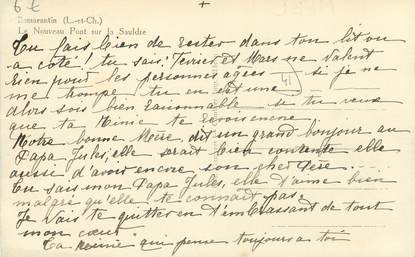 6 €
+
Romorantin (L.-et-Ch.)
Le Nouveau Pont sur la Sauldre
Tu fais bien de rester dans ton lit ou
a côté! tu sais: Fevrier et Mars ne valent
rien pour les personnes agées si je ne
me trompe tu en est une 41
Alors sois bien raisonnable si tu veux
que ta Ninie te revois encore
Notre bonne Mère, dit un grand bonjour au
Papa Jules, elle serait bien contente elle
aussi d'avoir encore son cher Père
Tu sais mon Papa Jules, elle t'aime bien
malgré qu'elle te connait pas
Je vais te quitter en t'embrassant de tout
mon cœur
ta Ninie qui pense toujours a toi